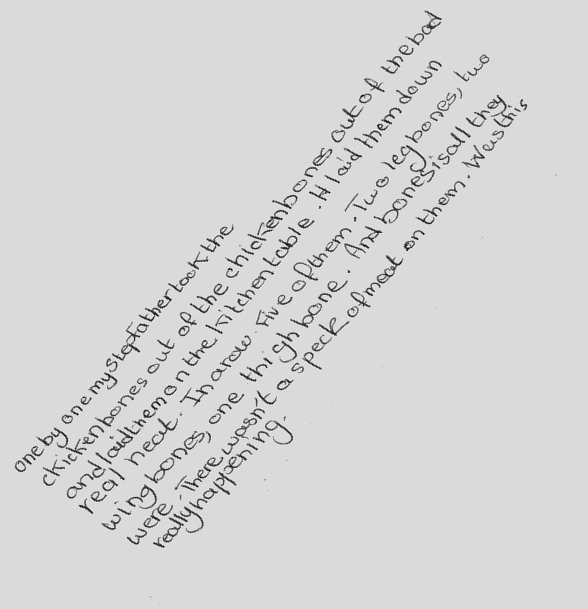 one by one my stepfather took the
ckickenbones out of the chickenbones out of the bad
and laid them on the kitchen table. H laid them down
real neat. In a row. Five of them. Two leg bones, two
wing bones, one thigh bone. And bones is all they
were. There wasn't a speck of meat on them. Was this
really happening.